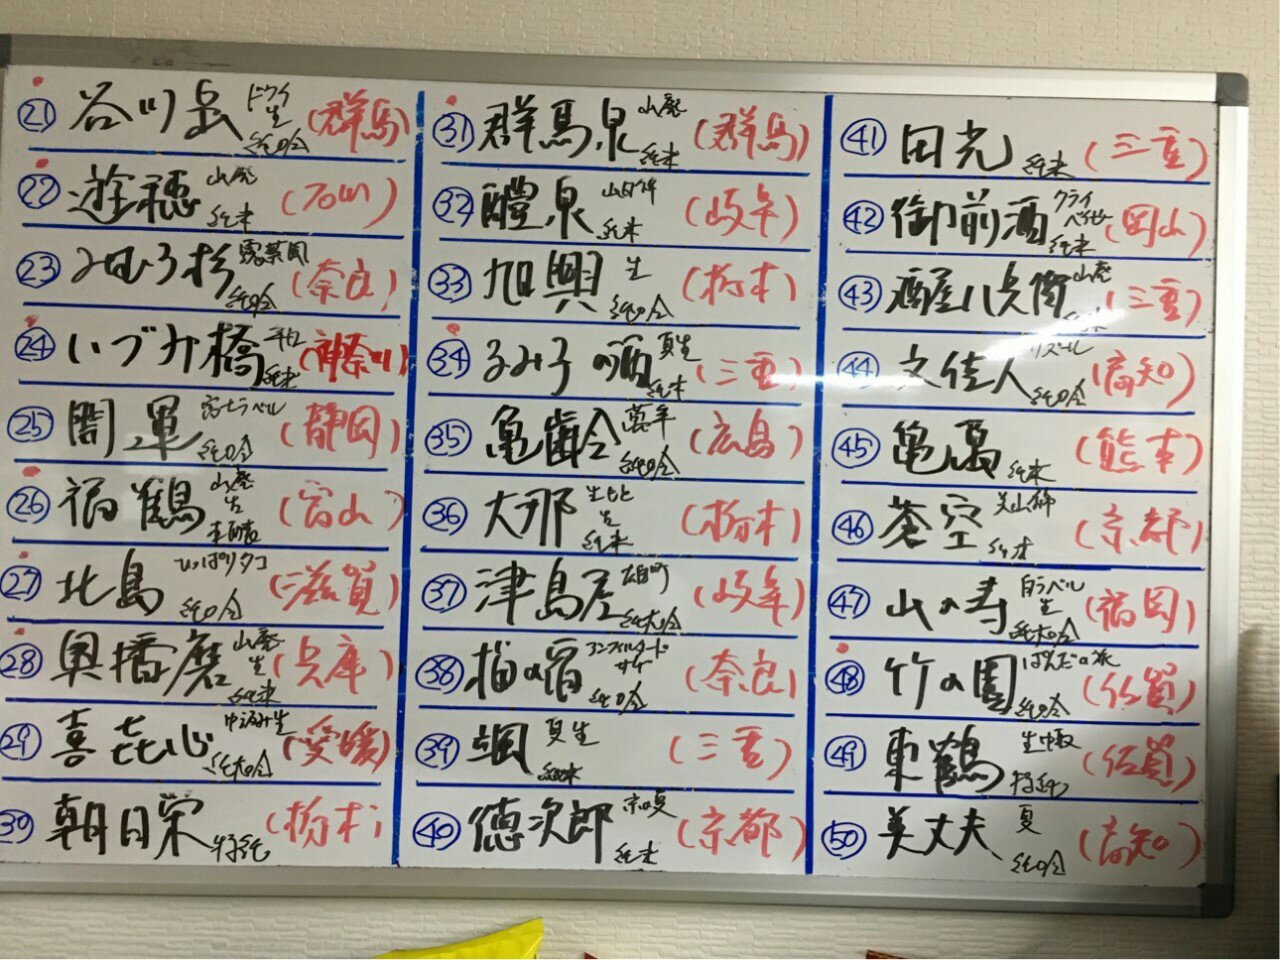 ㉑ 谷川岳 ドライ 生 純吟 (群馬)
㉒ 遊穂 山廃 純米 (石川)
㉓ みむろ杉 露葉風 純吟 (奈良)
㉔ いづみ橋 純米 (神奈川)
㉕ 開運 富士ラベル 純吟 (静岡)
㉖ 福鶴 山廃 生 (富山)
㉗ 北島 ひっぱりタコ 純吟 (滋賀)
㉘ 奥播磨 山廃 生 純米 (兵庫)
㉙ 喜㐂心 中汲み生 純大吟 (愛媛)
㉚ 朝日栄 特純 (栃木)
㉛ 群馬泉 山廃 純米 (群馬)
㉜ 醴泉 山田錦 純米 (岐阜)
㉝ 旭興 生 純吟 (栃木)
㉞ るみ子の酒 夏生 純米 (三重)
㉟ 亀齢 萬年 純吟 (広島)
㊱ 大那 生 純米 (栃木)
㊲ 津島屋 雄町 純大吟 (岐阜)
㊳ 梅の宿 アンフィルタード サケ 純吟 (奈良)
㊴ 颯 夏生 純米 (三重)
㊵ 徳次郎 京の夏 純米 (京都)
㊶ 田光 純米 (三重)
㊷ 御前酒 クライ ベイビー 純米 (岡山)
㊸ 酒屋八兵衛 山廃 純米 (三重)
㊹ 文佳人 リズール 純吟 (高知)
㊺ 亀萬 純米 (熊本)
㊻ 蒼空 美山錦 純米 (京都)
㊼ 山の寿 白ラベル 生 純大吟 (福岡)
㊽ 竹の園 ぱんだの祭 純吟 (佐賀)
㊾ 東鶴 生中取 特純 (佐賀)
㊿ 美丈夫 夏 純吟 (高知)